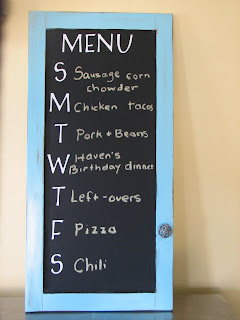 MENU
S Sausage corn
chowder
M Chicken tacos
T Pork + Beans
W Haven's
Birthday dinner
T Left-overs
F Pizza
S Chili